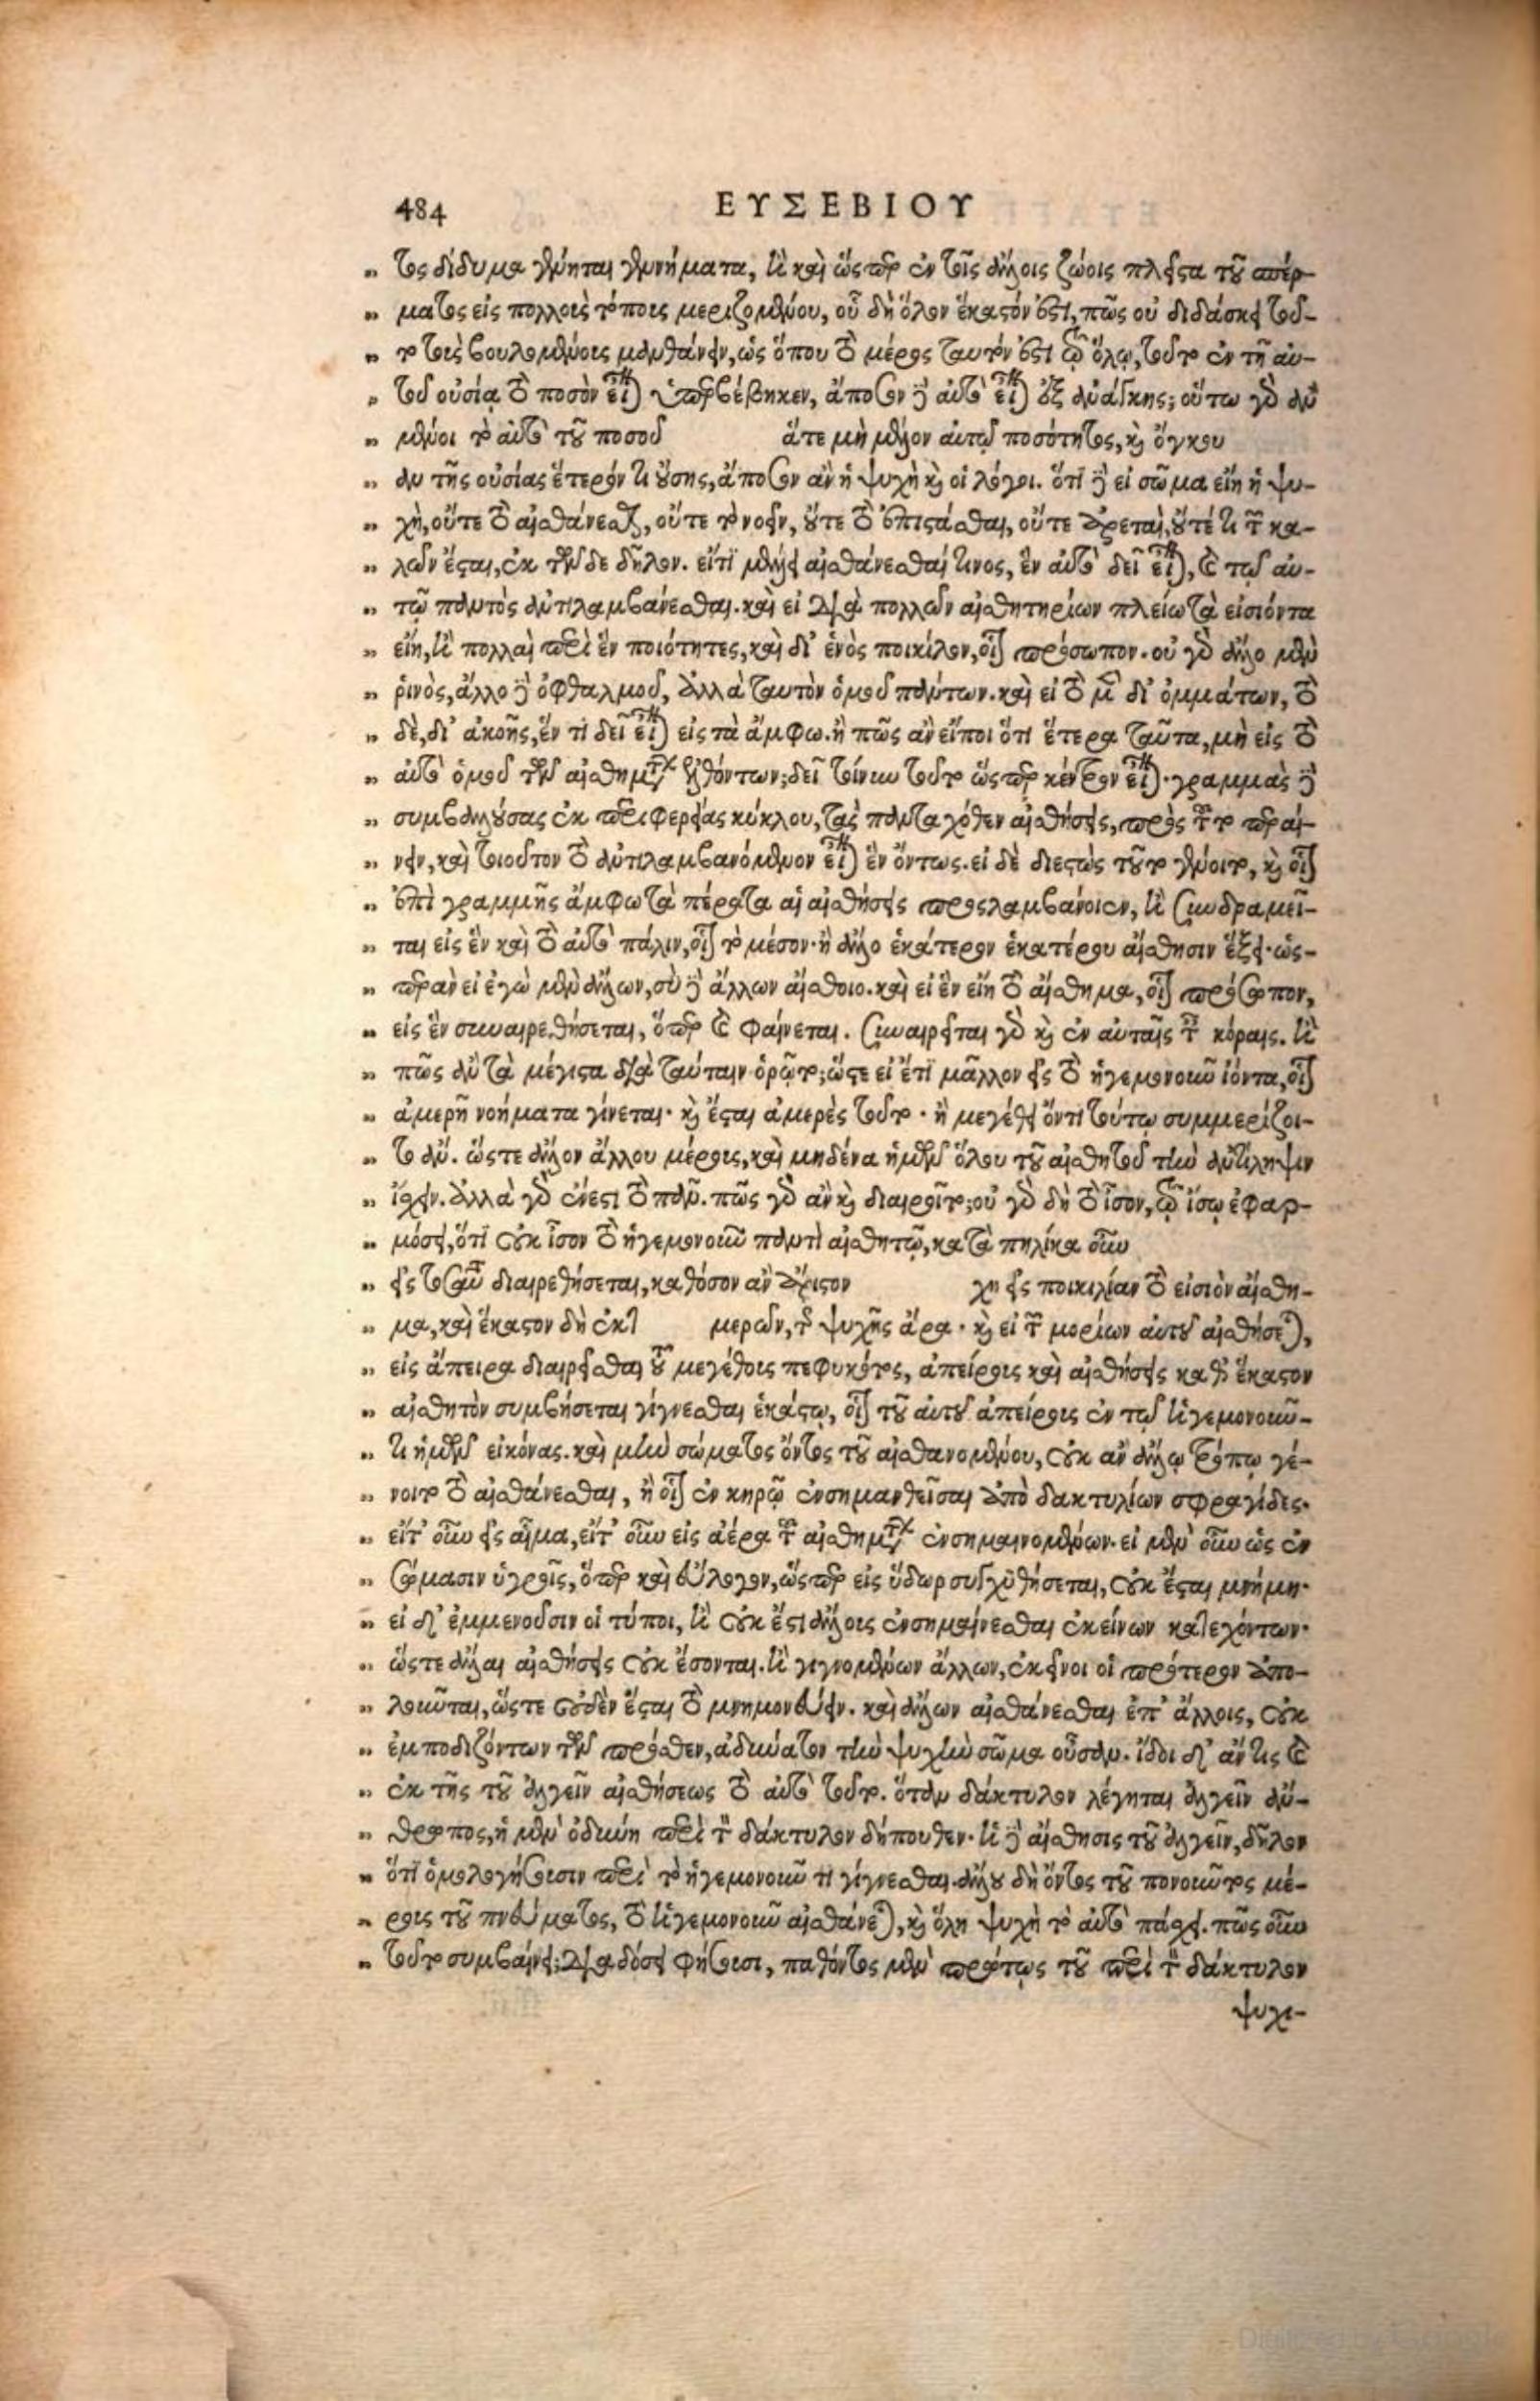 484 ΕΥΣΕΒΙΟΥ
„ τος δίδυμα γένηται γεννήματα, ἢ καὶ ὥσπερ ἐν τοῖς ἄλλοις ζώοις πλεῖστα τοῦ σπέρ-
„ ματος εἰς πολλοὺς τόπους μεριζομένου, οὗ δὴ ὅλον ἕκαστόν ἐστι, πῶς οὐ διδάσκει τοῦ-
„ το τοὺς βουλομένους μανθάνειν, ὡς ὅπου τὸ μέρος ταυτόν ἐστι τῷ ὅλῳ, τοῦτο ἐν τῇ αὑ-
„ τοῦ οὐσίᾳ τὸ ποσὸν εἶναι ὑπερβέβηκεν, ἄποσον δὲ αὐτὸ εἶναι ἐξ ἀνάγκης; οὕτω γὰρ ἂν
„ μένοι τὸ αὐτὸ τοῦ ποσοῦ ἅτε μὴ μέλον αὐτῷ ποσότητος, καὶ ὄγκου
„ ἂν τῆς οὐσίας ἕτερόν τι οὔσης, ἄποσον ἂν ἡ ψυχὴ καὶ οἱ λόγοι. ὅτι δὲ εἰ σῶμα εἴη ἡ ψυ-
„ χὴ, οὔτε τὸ αἰσθάνεσθαι, οὔτε τὸ νοεῖν, οὔτε τὸ ἐπίστασθαι, οὔτε ἀρεταὶ, οὔτέ τι τῶν κα-
„ λῶν ἔσται, ἐκ τῶν δε δῆλον. εἴτι μέλλει αἰσθάνεσθαί τινος, ἓν αὐτὸ δεῖ εἶναι, καὶ τῷ αὐ-
„ τῷ παντὸς ἀντιλαμβάνεσθαι. καὶ εἰ διὰ πολλῶν αἰσθητηρίων πλείω τὰ εἰσιόντα
„ εἴη, ἢ πολλαὶ περὶ ἓν ποιότητες, καὶ δι' ἑνὸς ποικίλον, οἷον πρόσωπον. οὐ γὰρ ἄλλο μὲν
„ ῥινὸς, ἄλλο δὲ ὀφθαλμοῦ, ἀλλὰ ταυτὸν ὁμοῦ πάντων. καὶ εἰ τὸ μὲν δι' ὀμμάτων, τὸ
„ δὲ, δι' ἀκοῆς, ἕν τι δεῖ εἶναι εἰς τὰ ἄμφω. ἢ πῶς ἂν εἴποι ὅτι ἕτερα ταῦτα, μὴ εἰς τὸ
„ αὐτὸ ὁμοῦ τῶν αἰσθημάτων ἐλθόντων; δεῖ τοίνυν τοῦτο ὥσπερ κέντρον εἶναι. γραμμὰς δὲ
„ συμβαλούσας ἐκ περιφερείας κύκλου, τὰς πανταχόθεν αἰσθήσεις, πρὸς τοῦτο περαί-
„ νειν, καὶ τοιοῦτον τὸ ἀντιλαμβανόμενον εἶναι ἓν ὄντως. εἰ δὲ διεστὼς τοῦτο γένοιτο, καὶ οἷον
„ ἐπὶ γραμμῆς ἄμφω τὰ πέρατα αἱ αἰσθήσεις προσλαμβάνοιεν, ἢ συνδραμεῖ-
„ ται εἰς ἓν καὶ τὸ αὐτὸ πάλιν, οἷον τὸ μέσον. ἢ ἄλλο ἑκάτερον ἑκατέρου αἴσθησιν ἕξει. ὡς-
„ περ ἂν εἰ ἐγὼ μὲν ἄλλων, σὺ δὲ ἄλλων αἴσθοιο. καὶ εἰ ἓν εἴη τὸ αἴσθημα, οἷον πρόσωπον,
„ εἰς ἓν συναιρεθήσεται, ὅπερ καὶ φαίνεται. συναιρεῖται γὰρ καὶ ἐν αὐταῖς ταῖς κόραις. ἢ
„ πῶς ἂν τὰ μέγιστα διὰ ταύταιν ὁρῷτο; ὥστε εἰ ἔτι μᾶλλον εἰς τὸ ἡγεμονοῦν ἰόντα, οἷον
„ ἀμερῆ νοήματα γίνεται. καὶ ἔσται ἀμερὲς τοῦτο. ἢ μεγέθει ὄντι τούτῳ συμμερίζοι-
„ το ἄν. ὥστε ἄλλον ἄλλου μέρους, καὶ μηδένα ἡμῶν ὅλου τοῦ αἰσθητοῦ τὴν ἀντίληψιν
„ ἴσχειν. ἀλλὰ γὰρ ἕνεστι τὸ πᾶν. πῶς γὰρ ἂν καὶ διαιροῖτο; οὐ γὰρ δὴ τὸ ἶσον, τῷ ἴσῳ ἐφαρ-
„ μόσει, ὅτι οὐκ ἶσον τὸ ἡγεμονοῦν παντὶ αἰσθητῷ, κατὰ πηλίκα οὖν
„ εἰς τοσαῦτα διαιρεθήσεται, καθόσον ἂν ἄριστον χῃ εἰς ποικιλίαν τὸ εἰσιὸν αἴσθη-
„ μα, καὶ ἕκαστον δὴ ἐκτ μερῶν, τῆς ψυχῆς ἄρα. καὶ εἰ τῶν μορίων αὐτοῦ αἰσθήσεται,
„ εἰς ἄπειρα διαιρεῖσθαι τοῦ μεγέθους πεφυκότος, ἀπείρους καὶ αἰσθήσεις καθ' ἕκαστον
„ αἰσθητὸν συμβήσεται γίγνεσθαι ἑκάστῳ, οἷον τοῦ αὐτοῦ ἀπείρους ἐν τῷ ἡγεμονοῦν-
„ τι ἡμῶν εἰκόνας. καὶ μὴν σώματος ὄντος τοῦ αἰσθανομένου, οὐκ ἂν ἄλλῳ τρόπῳ γέ-
„ νοιτο τὸ αἰσθάνεσθαι, ἢ οἷον ἐν κηρῷ ἐνσημανθεῖσαι ἀπὸ δακτυλίων σφραγίδες.
„ εἴτ' οὖν εἰς αἷμα, εἴτ' οὖν εἰς ἀέρα τῶν αἰσθημάτων ἐνσημαινομένων. εἰ μὲν οὖν ὡς ἐν
„ σώμασιν ὑγροῖς, ὅπερ καὶ εὔλογον, ὥσπερ εἰς ὕδωρ συγχυθήσεται, οὐκ ἔσται μνήμη.
„ εἰ δ' ἐμμενοῦσιν οἱ τύποι, ἢ οὐκ ἔστι ἄλλους ἐνσημαίνεσθαι ἐκείνων κατεχόντων.
„ ὥστε ἄλλαι αἰσθήσεις οὐκ ἔσονται. ἢ γιγνομένων ἄλλων, ἐκεῖνοι οἱ πρότερον ἀπο-
„ λοῦνται, ὥστε οὐδὲν ἔσται τὸ μνημονεύειν. καὶ ἄλλων αἰσθάνεσθαι ἐπ' ἄλλοις, οὐκ
„ ἐμποδιζόντων τῶν πρόσθεν, ἀδύνατον τὴν ψυχὴν σῶμα οὖσαν. ἴδοι δ' ἄν τις καὶ
„ ἐκ τῆς τοῦ ἀλγεῖν αἰσθήσεως τὸ αὐτὸ τοῦτο. ὅταν δάκτυλον λέγηται ἀλγεῖν ἄν-
„ θρωπος, ἡ μὲν ὀδύνη περὶ τὸν δάκτυλον δήπουθεν. ἡ δὲ αἴσθησις τοῦ ἀλγεῖν, δῆλον
„ ὅτι ὁμολογήσουσιν περὶ τὸ ἡγεμονοῦν τι γίγνεσθαι. ἄλλου δὴ ὄντος τοῦ πονοῦντος μέ-
„ ρους τοῦ πνεύματος, τὸ ἡγεμονοῦν αἰσθάνεται, καὶ ὅλη ψυχὴ τὸ αὐτὸ πάσχει. πῶς οὖν
„ τοῦτο συμβαίνει; διαδόσει φήσουσι, παθόντος μὲν πρώτως τοῦ περὶ τὸν δάκτυλον
ψυχι-